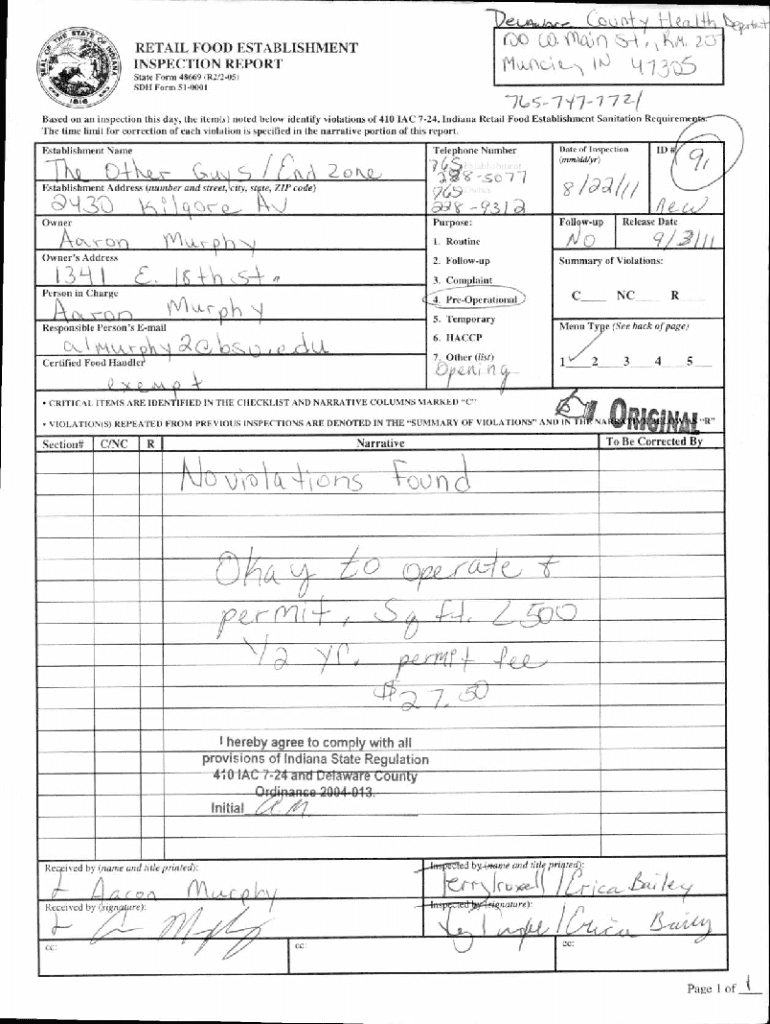 Delaware County Health Department
100 W. Main St., RM. 207
Muncie, IN 47305
765-747-7721
SEAL OF THE STATE OF INDIANA
1816
RETAIL FOOD ESTABLISHMENT
INSPECTION REPORT
State Form 48669 (R2/2-05)
SDH Form 51-0001
Based on an inspection this day, the item(s) noted below identify violations of 410 IAC 7-24, Indiana Retail Food Establishment Sanitation Requirements.
The time limit for correction of each violation is specified in the narrative portion of this report.
Establishment Name
The Other Guys / End Zone
Establishment Address (number and street, city, state, ZIP code)
2430 Kilgore Av
Owner
Aaron Murphy
Owner's Address
1341 E. 18th st.
Person in Charge
Aaron Murphy
Responsible Person's E-mail
almurphy2@bsu.edu
Certified Food Handler
exempt
Telephone Number
765 Establishment
288-5077
765 Owner
228-9312
Purpose:
1. Routine
2. Follow-up
3. Complaint
4. Pre-Operational
5. Temporary
6. HACCP
7. Other (list)
Opening
Date of Inspection
(mm/dd/yr)
8/22/11
ID #
91
new
Follow-up
No
Release Date
9/3/11
Summary of Violations:
C___ NC___ R___
Menu Type (See back of page)
1 ✓ 2 3 4 5
• CRITICAL ITEMS ARE IDENTIFIED IN THE CHECKLIST AND NARRATIVE COLUMNS MARKED "C"
ORIGINAL
• VIOLATION(S) REPEATED FROM PREVIOUS INSPECTIONS ARE DENOTED IN THE "SUMMARY OF VIOLATIONS" AND IN THE NARRATIVE BELOW AS "R"
Section# C/NC R Narrative To Be Corrected By
No violations Found
Okay to operate &
permit, Sq ft. < 500
1/2 yr. permit fee
$27.50
I hereby agree to comply with all
provisions of Indiana State Regulation
410 IAC 7-24 and Delaware County
Ordinance 2004-013.
Initial AM
Received by (name and title printed):
Aaron Murphy
Inspected by (name and title printed):
Terry Troxell / Erica Bailey
Received by (signature):
Inspected by (signature):
/ Erica Baily
cc: cc: cc:
Page 1 of 1